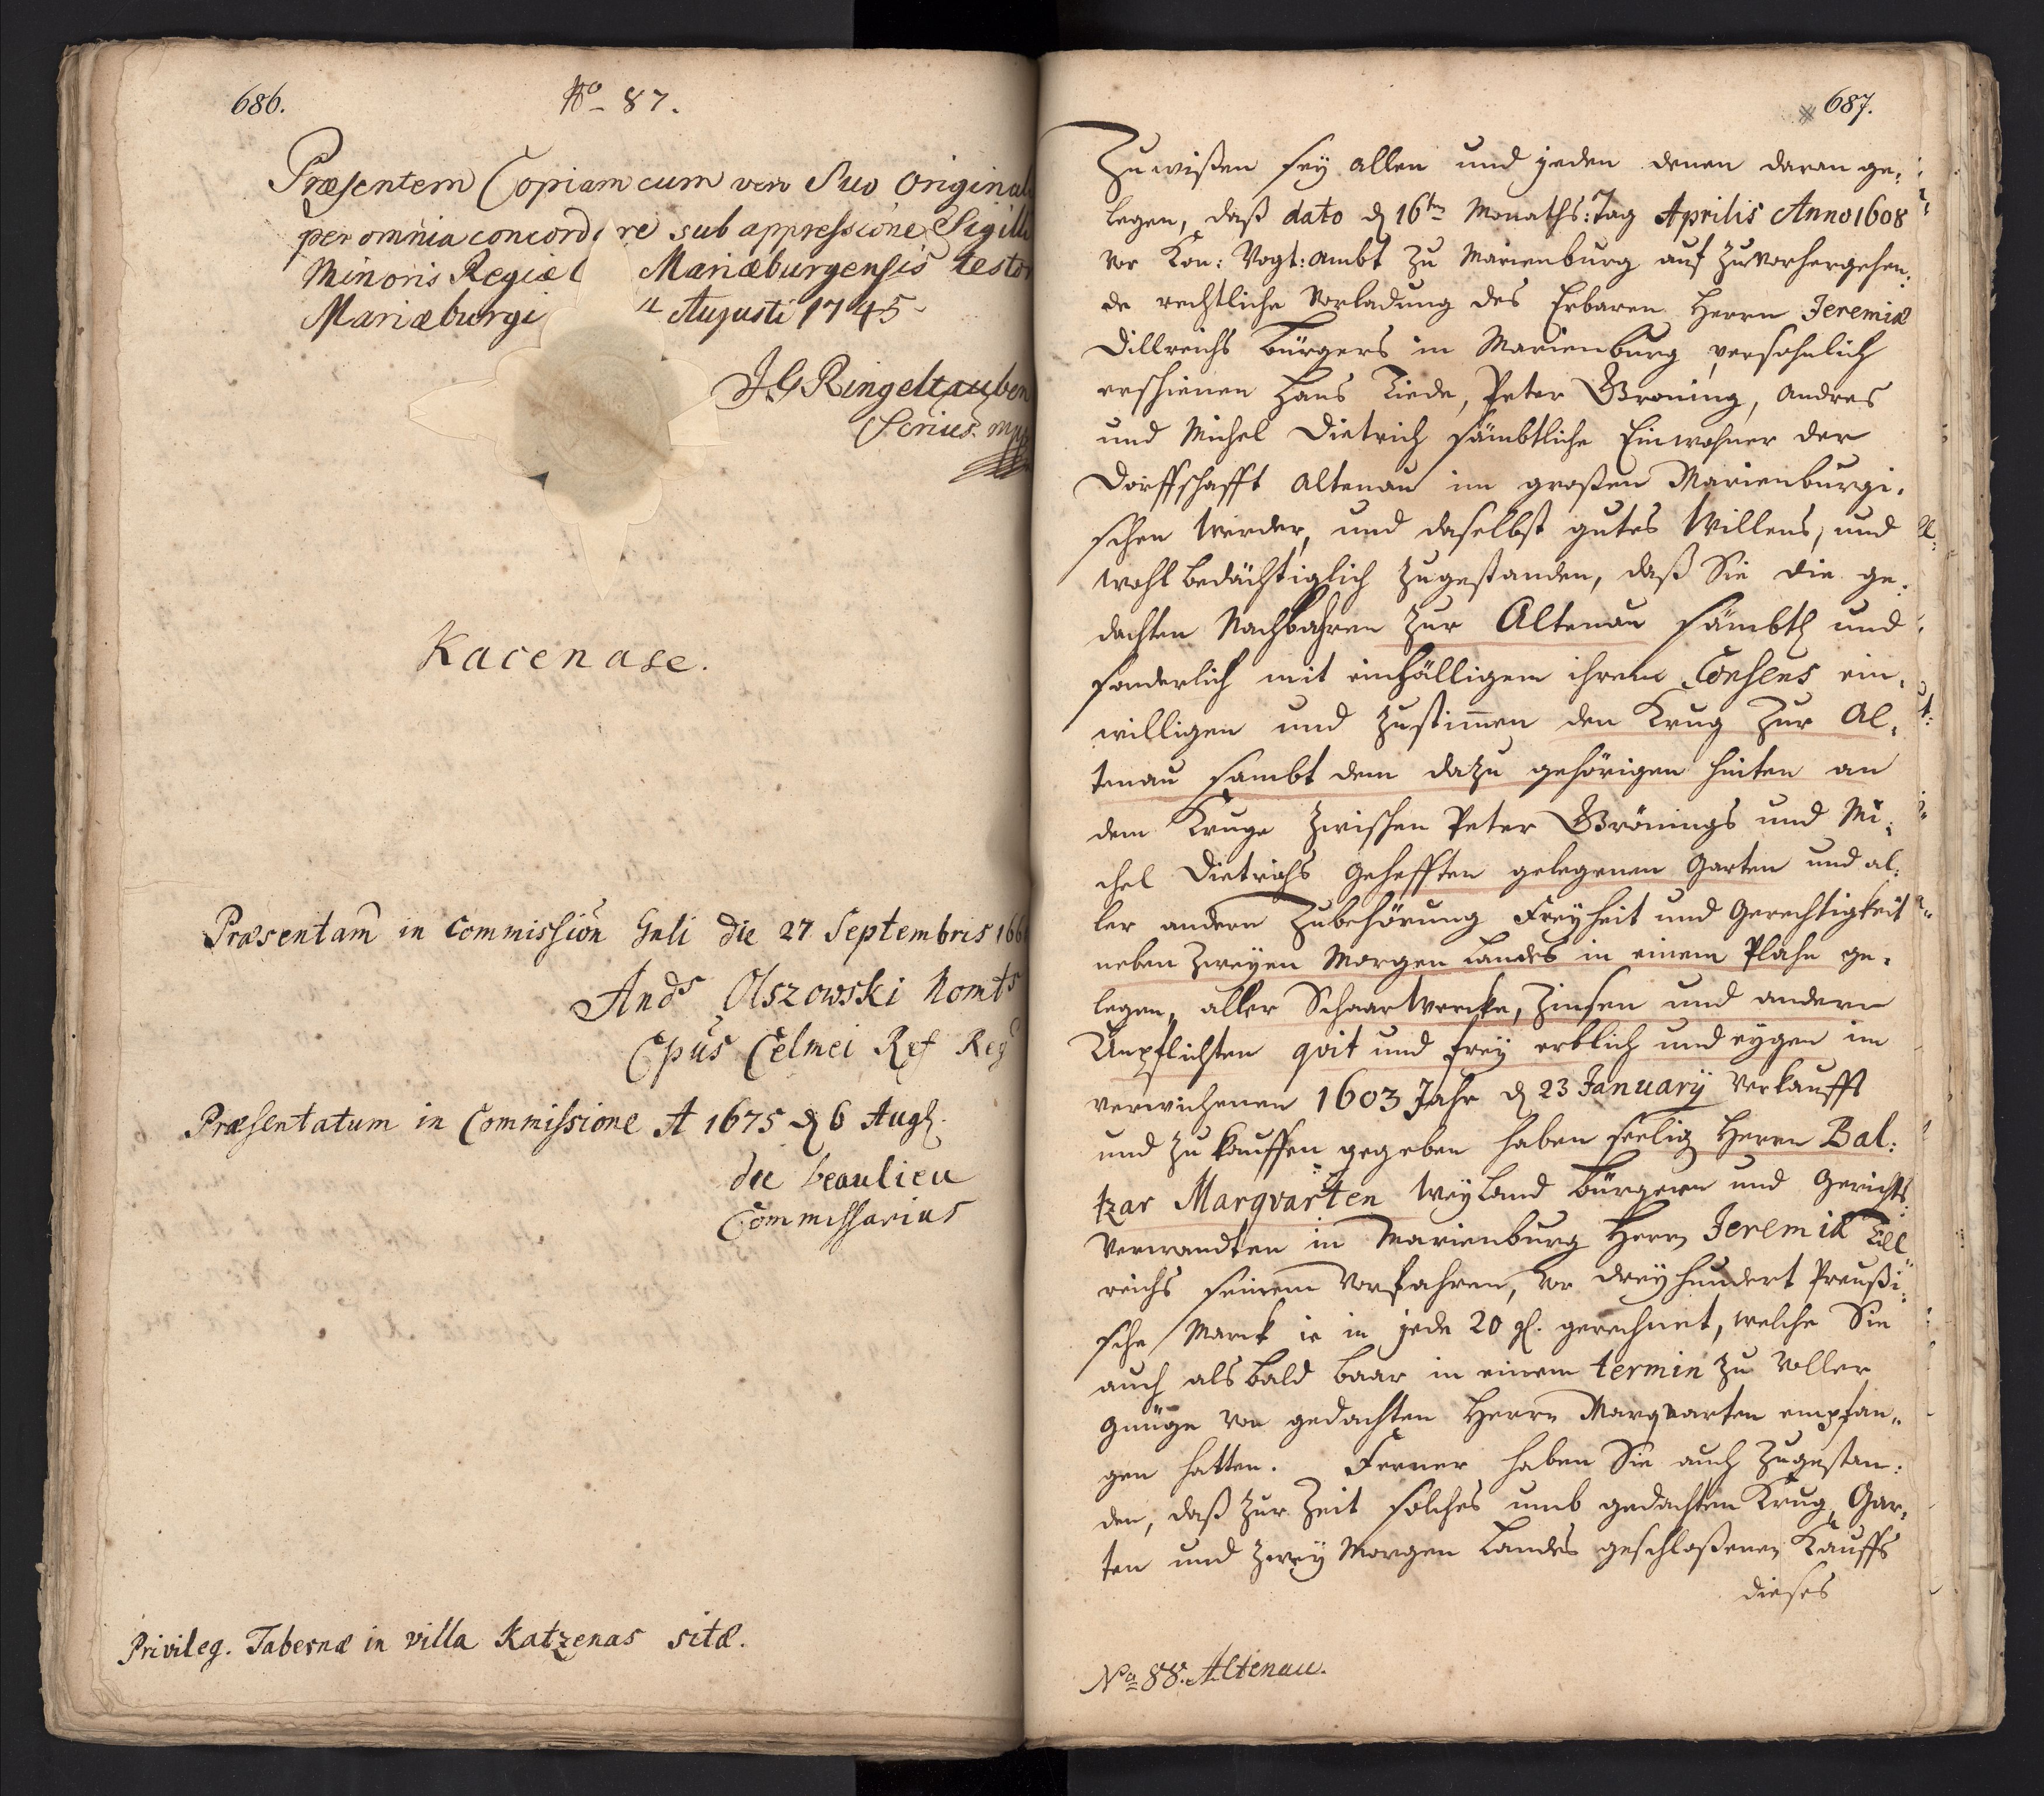 686.
No 87.
Præsentem Copiam cum vero Suo Original
per omnia concord re sub appressione Sigilli
Minoris Regiæ Mariæburgensis testor
Mariæburgi Augusti 1745
J. G Ringeltauben
Kacenase.
Præsentam in commission Gnli die 27 Septembris 166
Ands Olszowski Nomts
Epus Celmei Ref Reg
Præsentatum in Commissione A 1675 d 6 Aug
du beaulieu
Commissarius
Privileg. Tabernæ in villa Katzenas sitæ.
687.
Zu wißen sey allen und jeden denen daran ge,
legen, daß dato d 16ten Monaths: Tag Aprilis Anno 1608
vor Kön: Vogt: Ambt zu Marienburg auf zuvorhergehen,
de rechtliche Vorladung des Erbaren Herrn Jeremiæ
Dillreichs Bürgers in Marienburg persohnlich
erschienen Hans Tiede, Peter Gröning, Andres
und Michel Dietrich sämbtliche Einwohner der
Dorffschafft Altenau im großen Marienburgi,
schen Werder, und daselbst gutes Willens, und
wohl bedächtiglich zugestanden, daß Sie die ge,
dachten Nachbahren zur Altenau sämbtl und
sonderlich mit einhälligem ihrem Consens ein,
willigen und zustimen den Krug zur Al,
tenau sambt dem dazu gehörigen hinten an
dem Kruge zwischen Peter Grönings und Mi,
chel Dietrichs Gehefften gelegenen Garten und al,
ler andern Zubehörung Freyheit und Gerechtigkeit
neben zweyen Morgen Landes in einem Plahn ge,
legen, aller Schaarwercke, Zinsen und andern
Unpflichten qvit und frey erblich und eygen im
verwichenen 1603 Jahr d 23 January verkaufft
und zu kauffen gegeben haben seelig Herrn Bal:
tzar Marqvarten weyland Bürgern und Gerichts
Verwandten in Marienburg Herrn Jeremiæ Till
reichs seinem Vorfahren, vor dreyhundert Preußi,
sche Marck ie in jede 20 gl. gerechnet, welche Sie
auch alsbald baar in einem termin zu voller
Gnüge von gedachten Herrn Marqvarten empfan,
gen hatten. Ferner haben Sie auch zugestan:
den, daß zur Zeit solches umb gedachten Krug, Gar,
ten und zwey Morgen Landes geschloßenen Kauffs
dieses
No 88. Altenau.